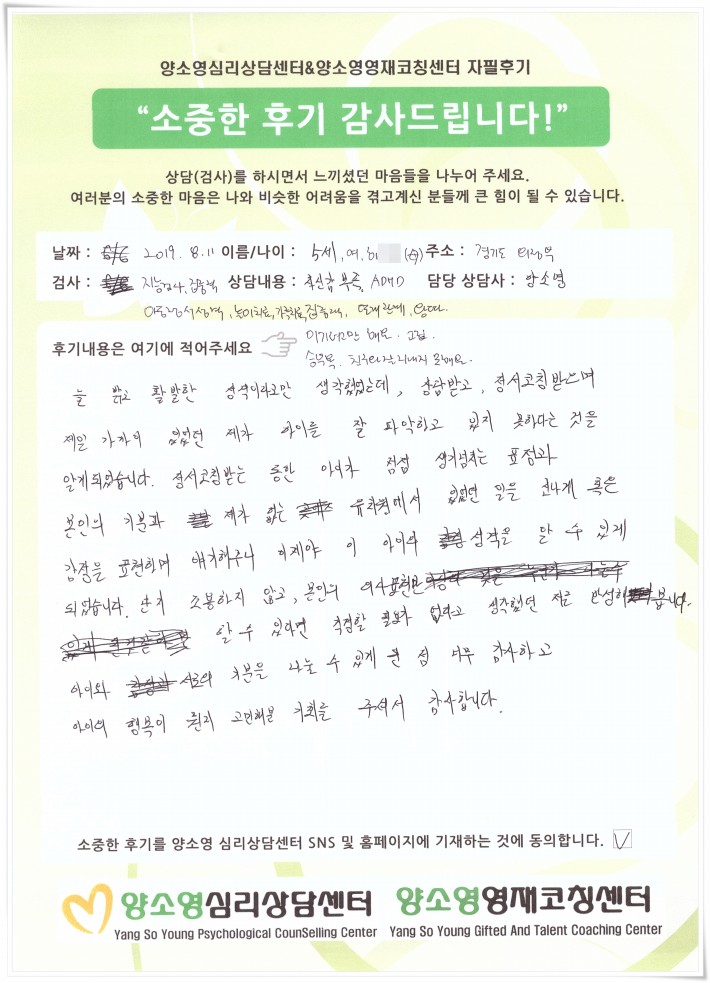 양소영심리상담센터&양소영영재코칭센터 자필후기
“소중한 후기 감사드립니다!”
상담(검사)를 하시면서 느끼셨던 마음들을 나누어 주세요.
여러분의 소중한 마음은 나와 비슷한 어려움을 겪고계신 분들께 큰 힘이 될 수 있습니다.
날짜 : 2019. 8.11 이름/나이 : 5세, 여, 주소 : 경기도 의정부
검사 : 지능검사, 집중력 상담내용 : 자신감 부족, ADHD 담당 상담사 : 양소영
놀이치료, 또래관계,
후기내용은 여기에 적어주세요
이기려고만 해요. 고집
승부욕. 친구와 잘 지내지 못해요.
늘 밝고 활발한 성격이라고만 생각했었는데, 상담받고, 정서코칭받으며
제일 가까이 있었던 제가 아이를 잘 파악하고 있지 못하다는 것을
알게되었습니다. 정서코칭받는 동안 아이가 점점 생기넘치는 표정과
본인의 기분과 제가 없는 유치원에서 있었던 일을 신나게 혹은
감정을 표현하며 얘기해주니 이제야 이 아이의 성격을 알 수 있게
되었습니다. 단지 소통하지 않고, 본인의 의사표현만
할 수 있다면 걱정할 필요가 없다고 생각했던 저를 반성해봅니다.
아이와 서로의 기분을 나눌 수 있게 된 점 너무 감사하고
아이의 행복이 뭔지 고민해볼 기회를 주셔서 감사합니다.
소중한 후기를 양소영 심리상담센터 SNS 및 홈페이지에 기재하는 것에 동의합니다.
양소영심리상담센터 양소영영재코칭센터
Yang So Young Psychological CounSelling Center Yang So Young Gifted And Talent Coaching Center